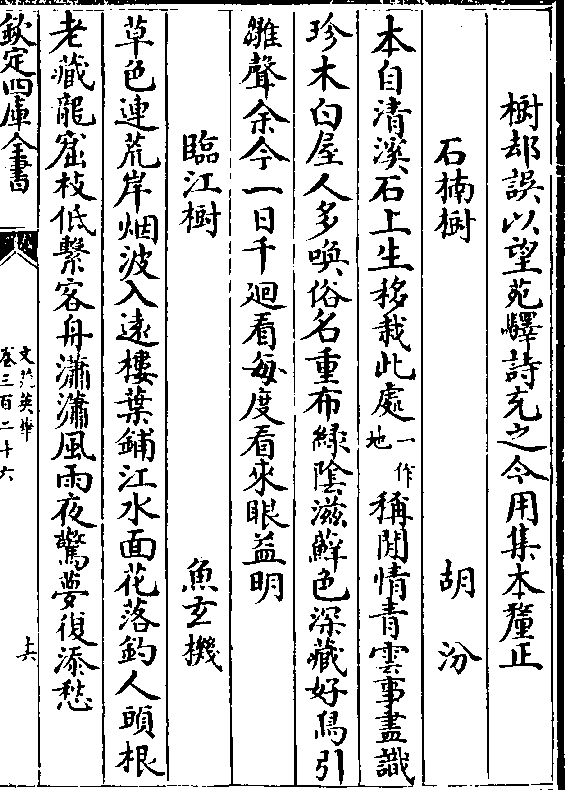 樹却誤以望苑驛詩充之今用集本釐正
石楠樹 胡汾
本自清溪石上生移栽此處一作地稱閒情青雲事盡識
珍木白屋人多喚俗名重布綠陰滋蘚色深藏好鳥引
雛聲余今一日千廻看每度看來眼益明
臨江樹 魚玄機
草色連荒岸烟波入遠樓葉鋪江水面花落釣人頭根
老藏龍窟枝低繫客舟瀟瀟風雨夜驚夢復添愁
欽定四庫全書
文苑英華
卷三百二十六
十六